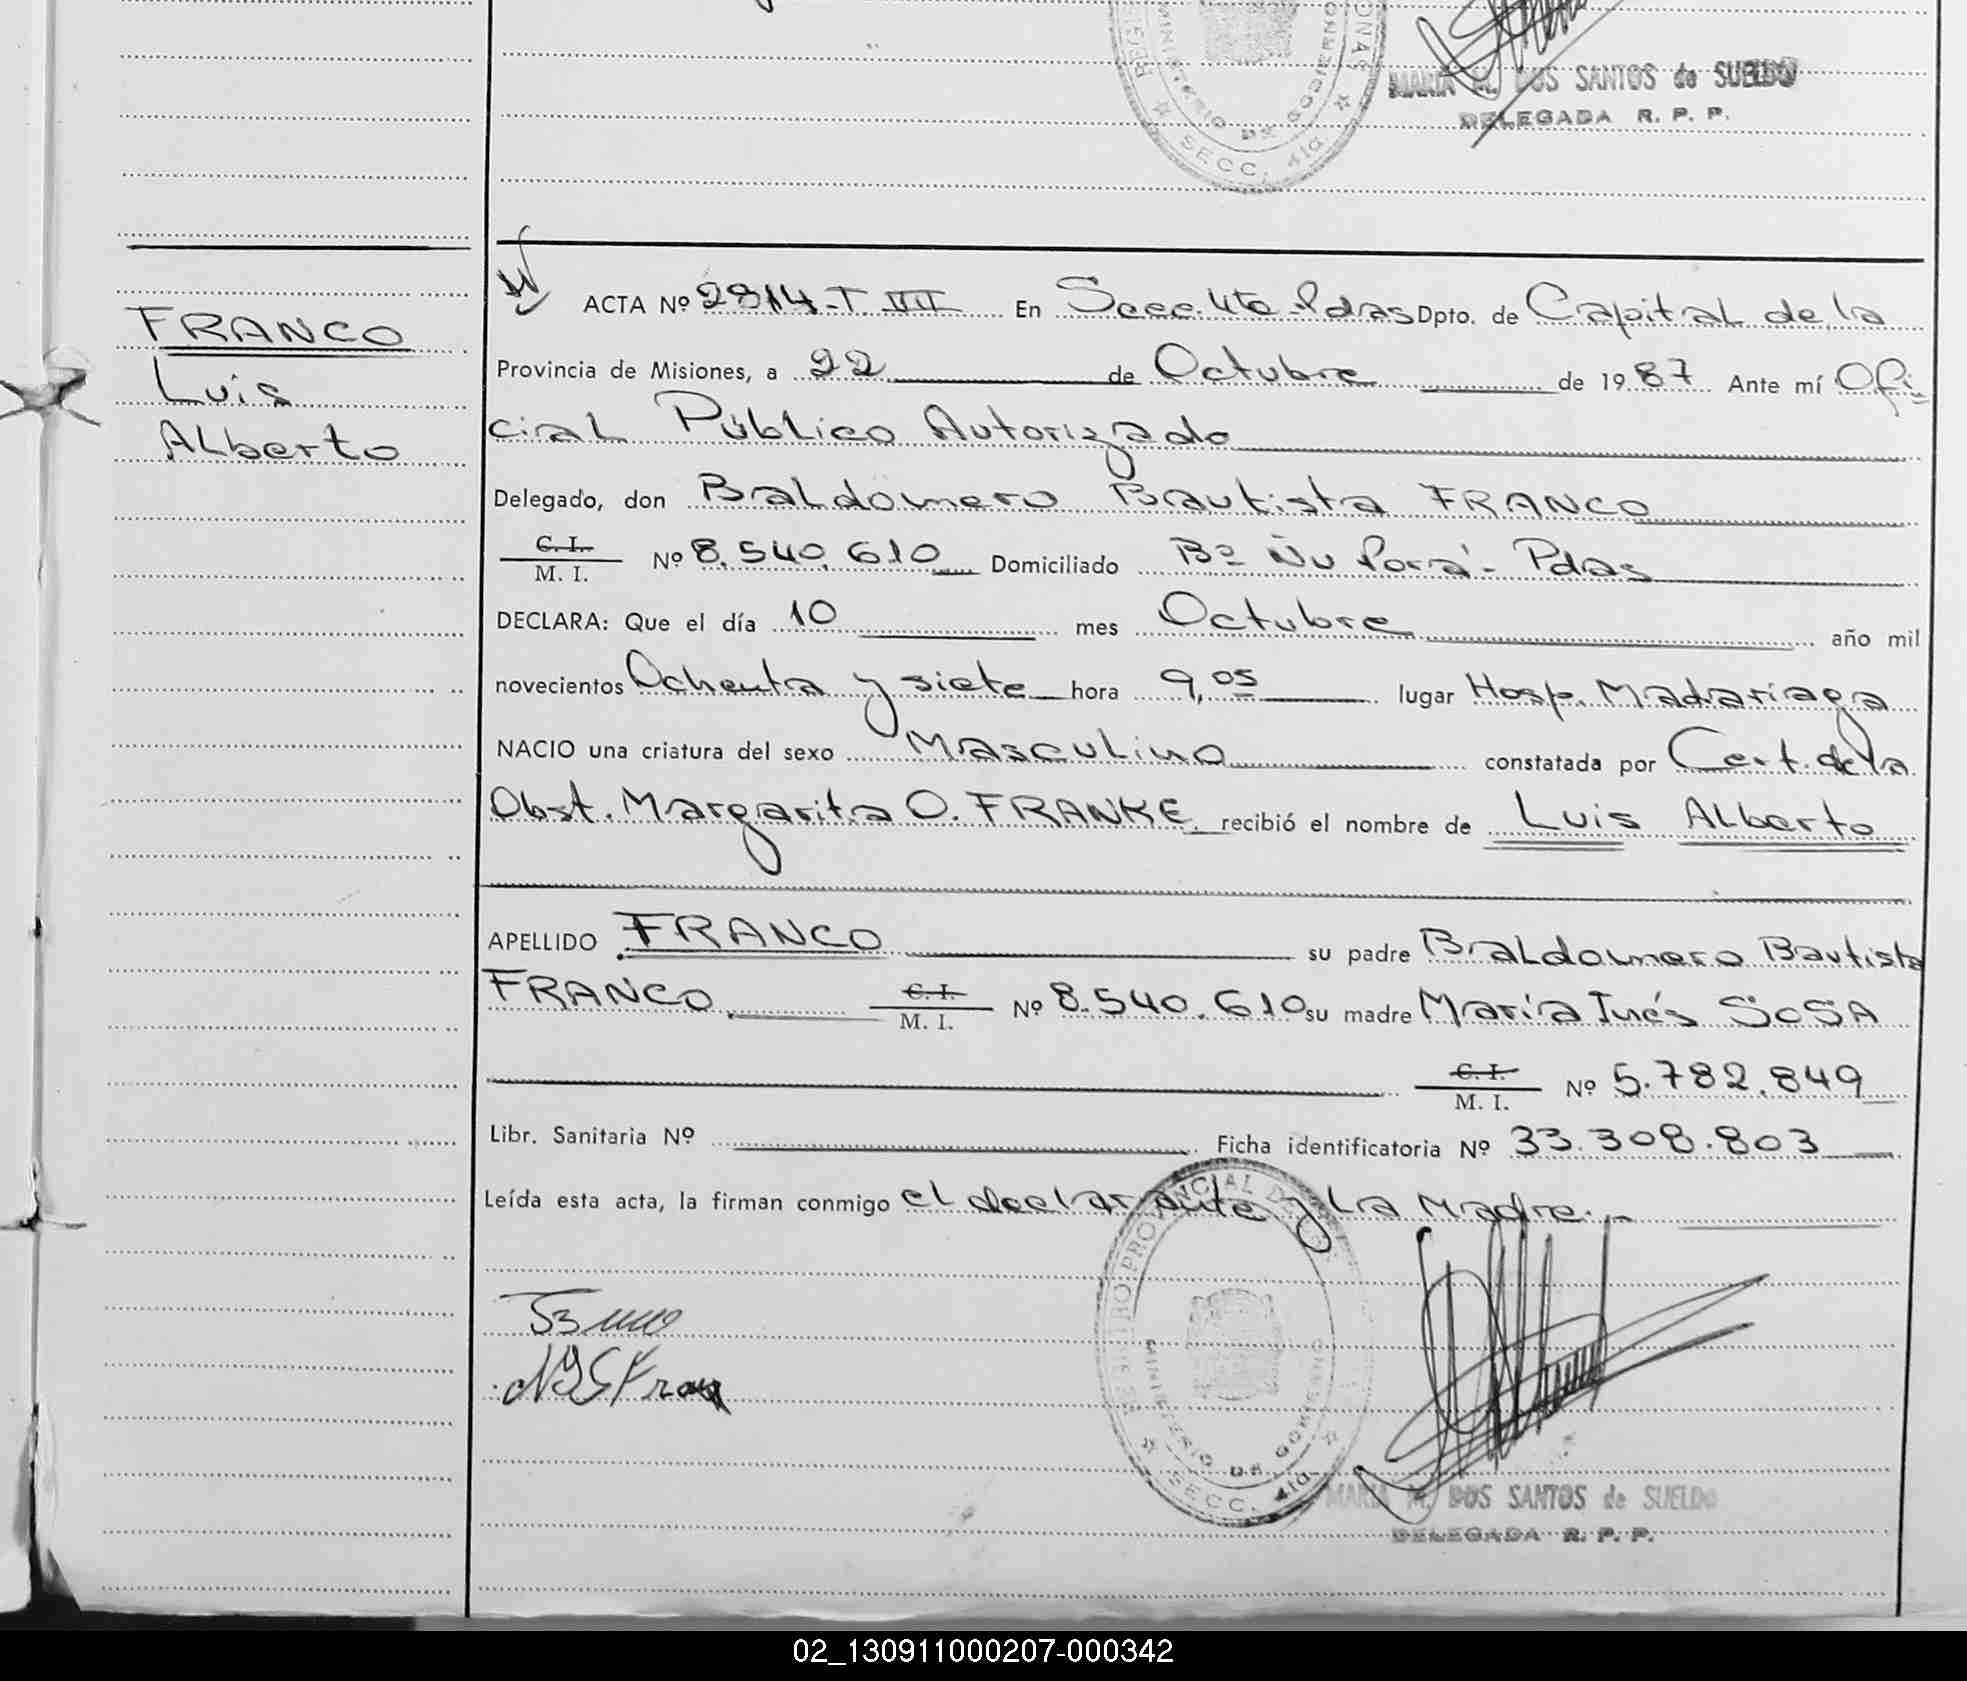 MARIA M. DOS SANTOS de SUELDO
DELEGADA R. P. P.
MINISTERIO DE GOBIERNO
SECC. 4ta
FRANCO
Luis
Alberto
ACTA Nº 2914-T. VII En Secc. 4ta Pdas Dpto. de Capital de la
Provincia de Misiones, a 22 de Octubre de 1987 Ante mí Ofi
cial Público Autorizado
Delegado, don Baldomero Bautista FRANCO
C. I.
M. I. Nº 8.540.610 Domiciliado Bº Ñu Porá - Pdas
DECLARA: Que el día 10 mes Octubre año mil
novecientos Ochenta y siete hora 9,05 lugar Hosp. Madariaga
NACIO una criatura del sexo Masculino constatada por Cert. de la
Obst. Margarita O. FRANKE recibió el nombre de Luis Alberto
APELLIDO FRANCO su padre Baldomero Bautista
FRANCO C. I. M. I. Nº 8.540.610 su madre María Inés SOSA
C. I.
M. I. Nº 5.782.849
Libr. Sanitaria Nº Ficha identificatoria Nº 33.308.803
Leída esta acta, la firman conmigo el declarante y La Madre.-
MINISTERIO DE GOBIERNO
SECC. 4ta
MARIA M. DOS SANTOS de SUELDO
DELEGADA R. P. P.
02_130911000207-000342